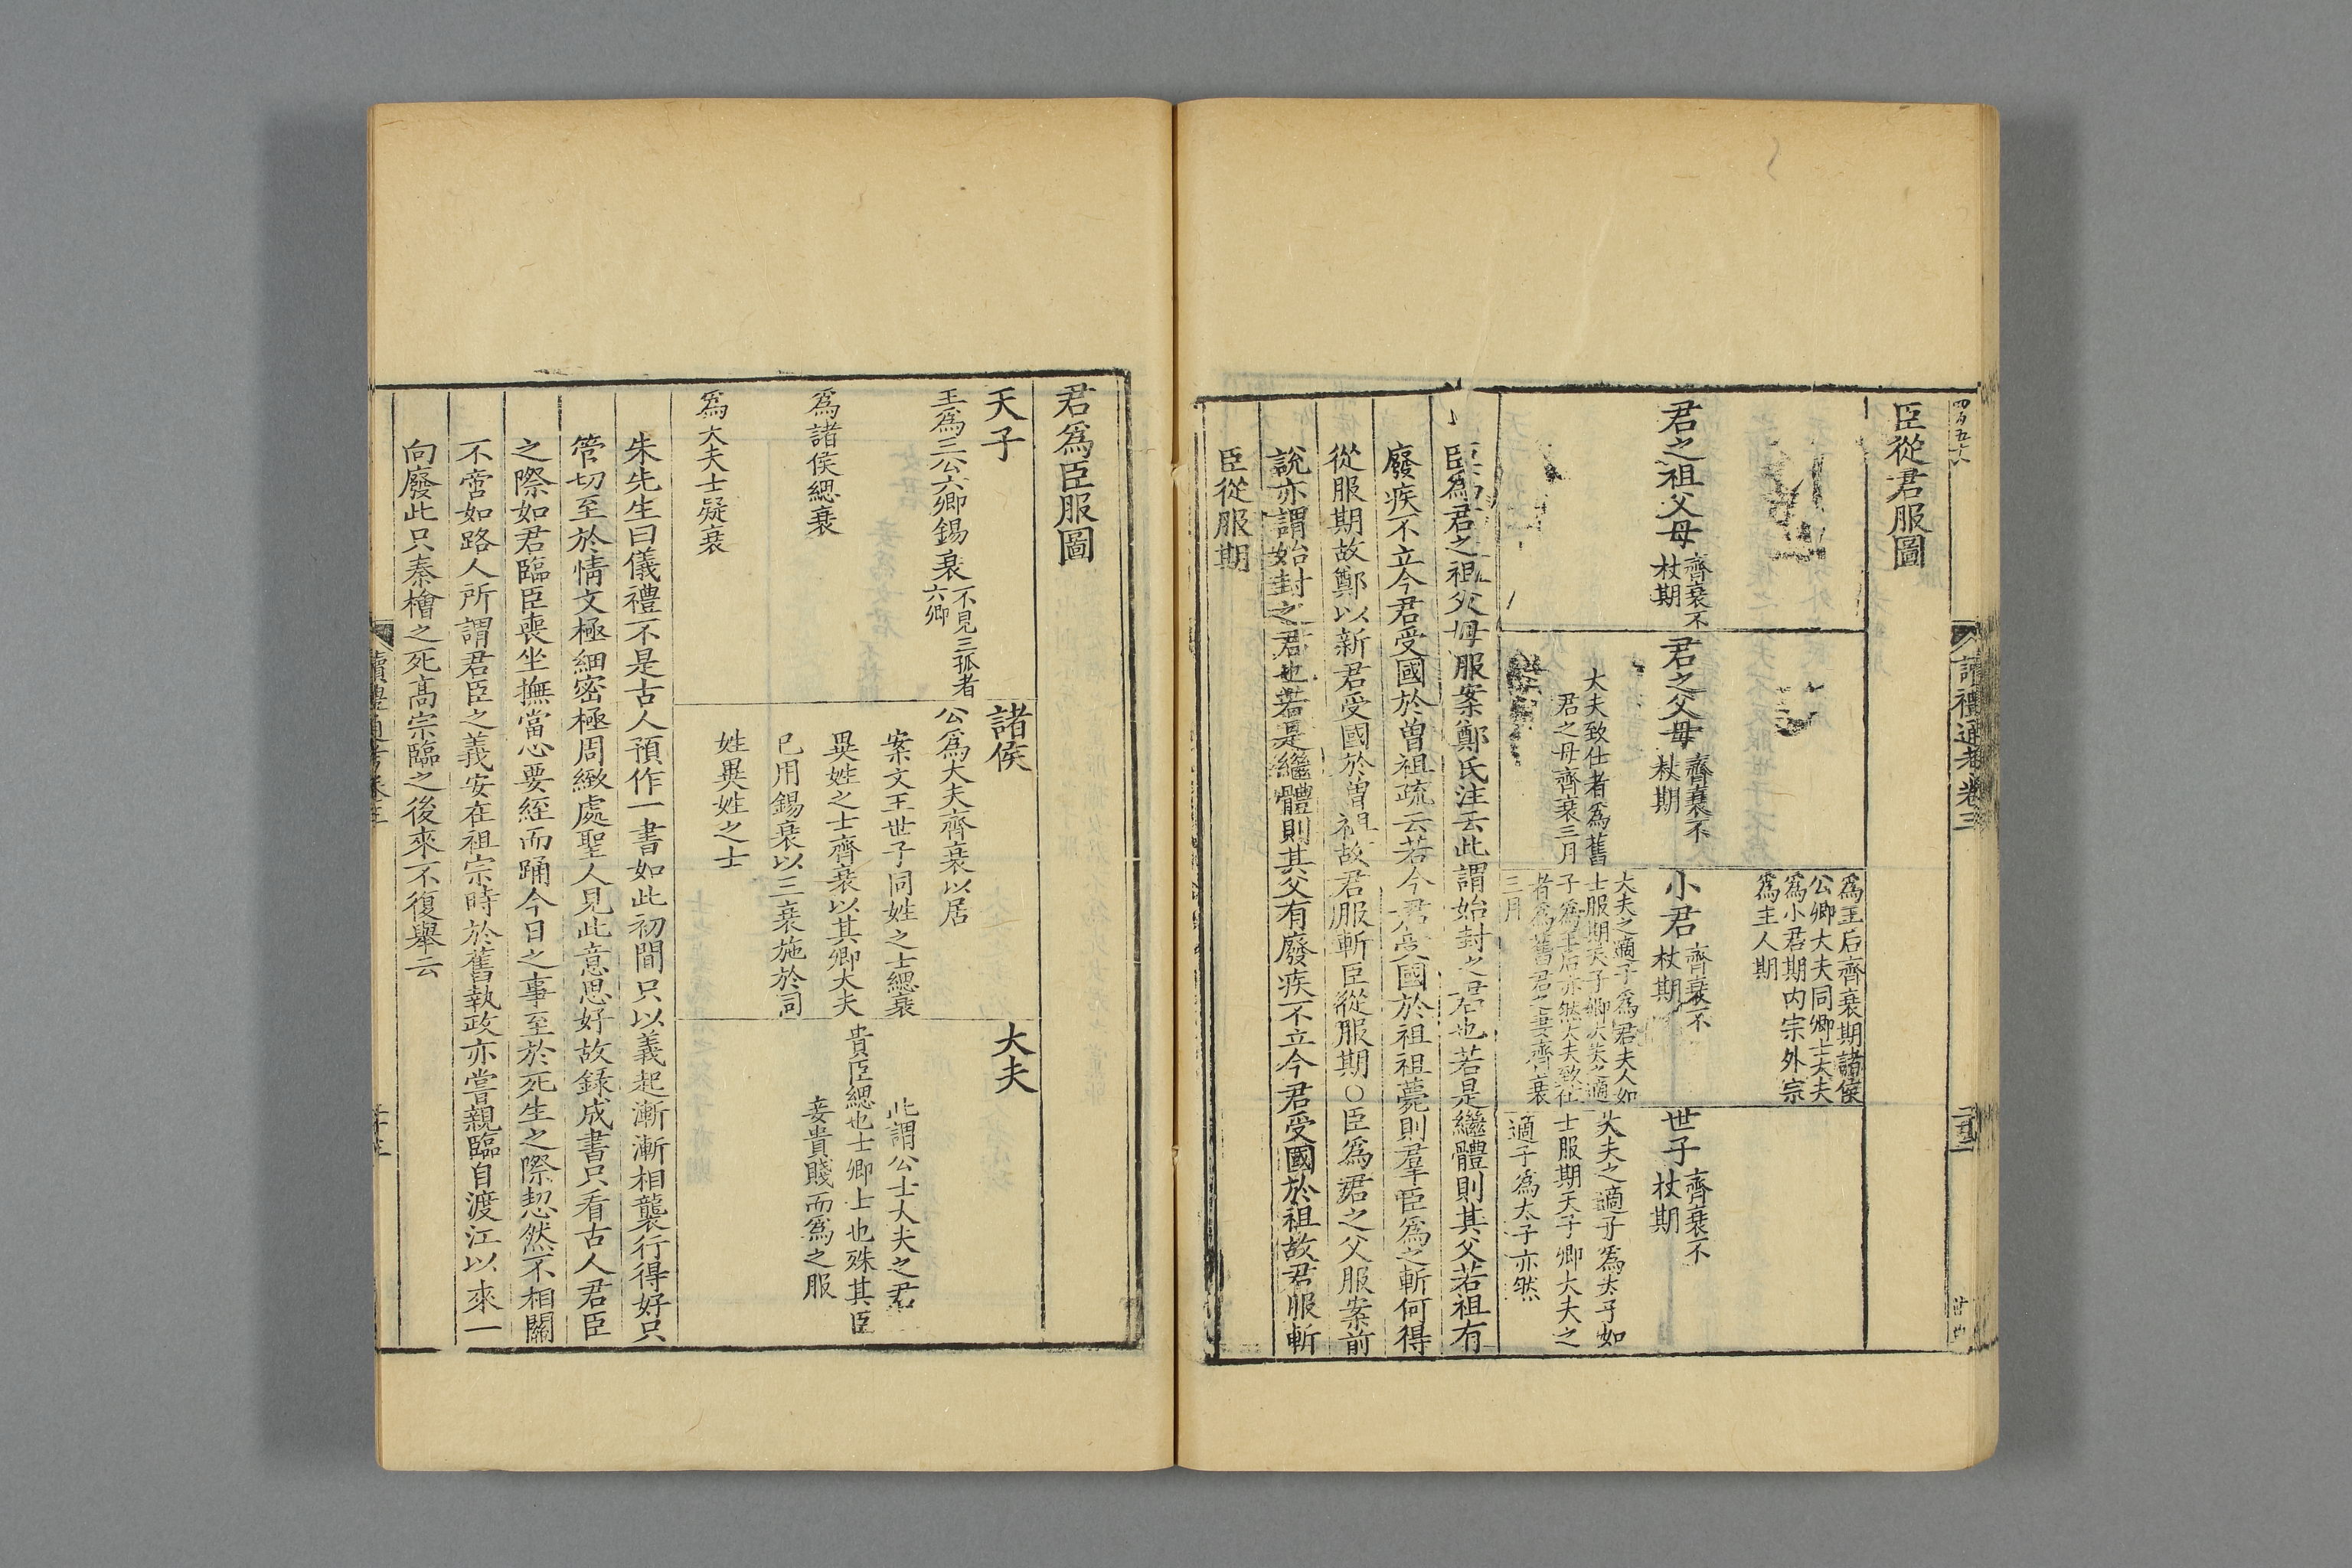 讀禮通考卷三
臣從君服圖
君之祖父母 齊衰不杖期
君之父母 齊衰不杖期
大夫致仕者爲舊
君之母齊衰三月
爲王后齊衰期諸侯
公卿大夫同卿士大夫
爲小君期内宗外宗
爲主人期
小君 齊衰不杖期
大夫之適子爲君夫人如
士服期天子卿大夫之適
子爲王后亦然大夫致仕
者爲舊君之妻齊衰
三月
世子 齊衰不杖期
大夫之適子爲太子如
士服期天子卿大夫之
適子爲太子亦然
臣爲君之祖父母服案鄭氏注云此謂始封之君也若是繼體則其父若祖有
廢疾不立今君受國於曾祖疏云若今君受國於祖祖薨則羣臣爲之斬何得
從服期故鄭以新君受國於曾祖故君服斬臣從服期○臣爲君之父服案前
說亦謂始封之君也若是繼體則其父有廢疾不立今君受國於祖故君服斬
臣從服期
君爲臣服圖
天子
王爲三公六卿錫衰 不見三孤者六卿
爲諸侯緦衰
爲大夫士疑衰
諸侯
公爲大夫齊衰以居
案文王世子同姓之士緦衰
異姓之士齊衰以其卿大夫
已用錫衰以三衰施於同
姓異姓之士
大夫
此謂公士大夫之君
貴臣緦也士卿士也殊其臣
妾貴賤而爲之服
朱先生曰儀禮不是古人預作一書如此初間只以義起漸漸相襲行得好只
管切至於情文極細密極周緻處聖人見此意思好故錄成書只看古人君臣
之際如君臨臣喪坐撫當心要絰而踊今日之事至於死生之際恝然不相關
不啻如路人所謂君臣之義安在祖宗時於舊執政亦嘗親臨自渡江以來一
向廢此只秦檜之死高宗臨之後來不復舉云